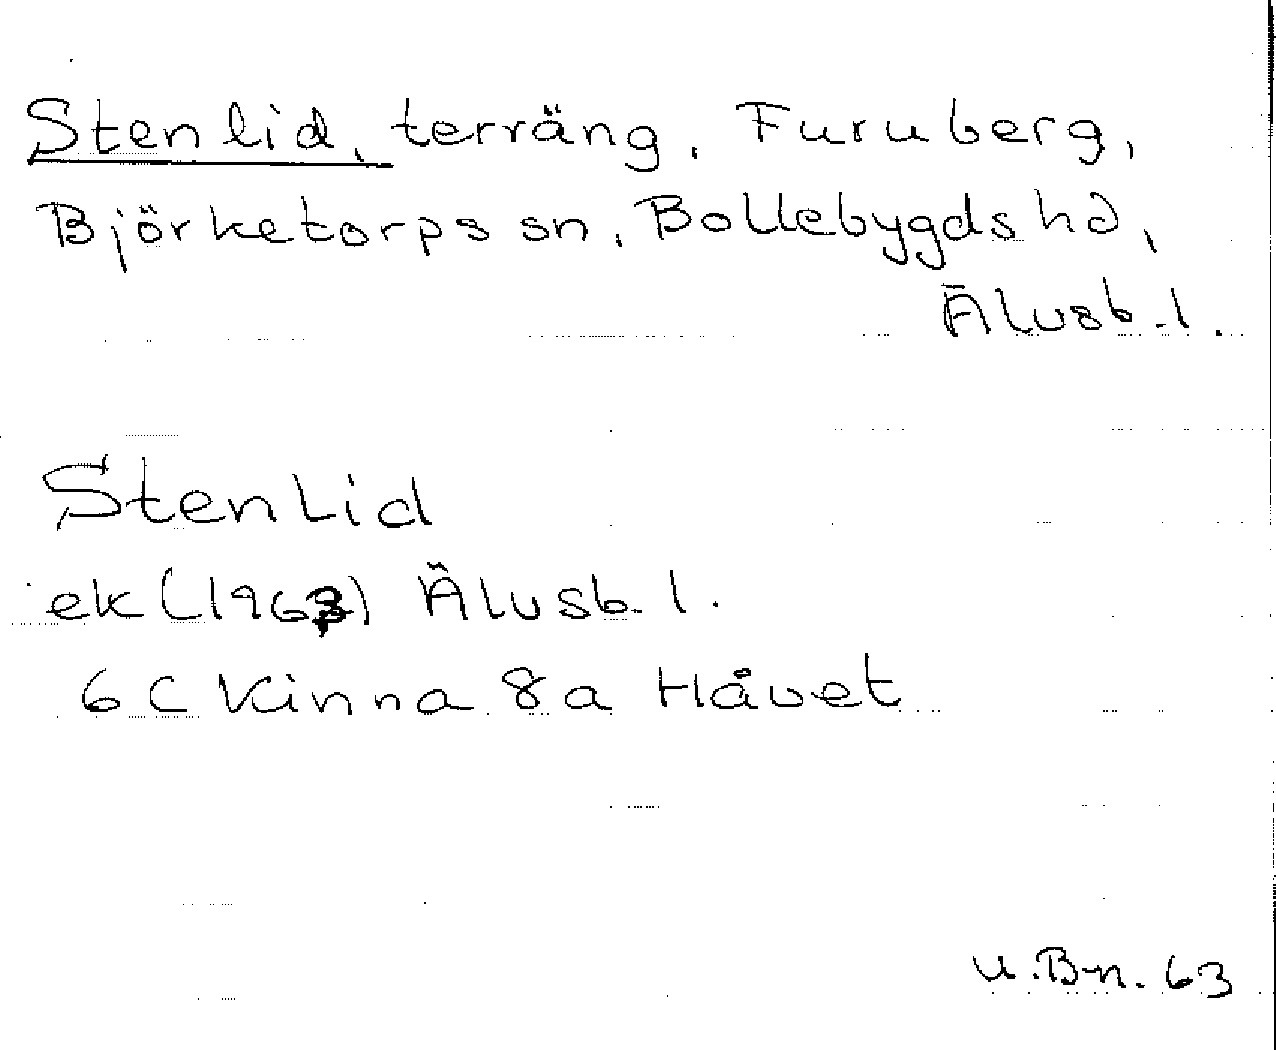 Stenlid, terräng, Furuberg,
Björketorps sn, Bollebygds hd,
Älvsb. l.
Stenlid
ek (1963) Älvsb. l.
6 C Kinna 8 a Håvet
u. B-n. 63